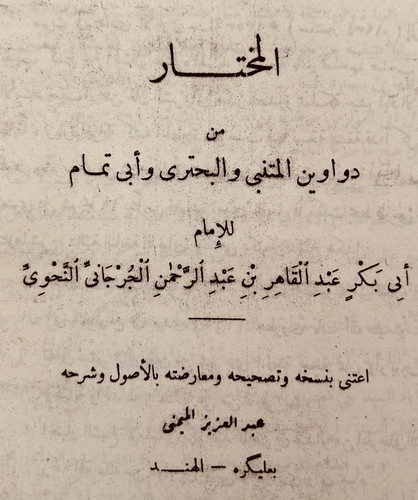 المختار
من
دواوين المتنبى والبحترى وأبى تمام
للإمام
أَبِي بَكْرٍ عَبْدِ ٱلْقَاهِرِ بْنِ عَبْدِ ٱلرَّحْمٰنِ ٱلْجُرْجَانِىِّ ٱلنَّحْوِىِّ
اعتنى بنسخه وتصحيحه ومعارضته بالأصول وشرحه
عبد العزيز الميمنى
بعليكره – الهند